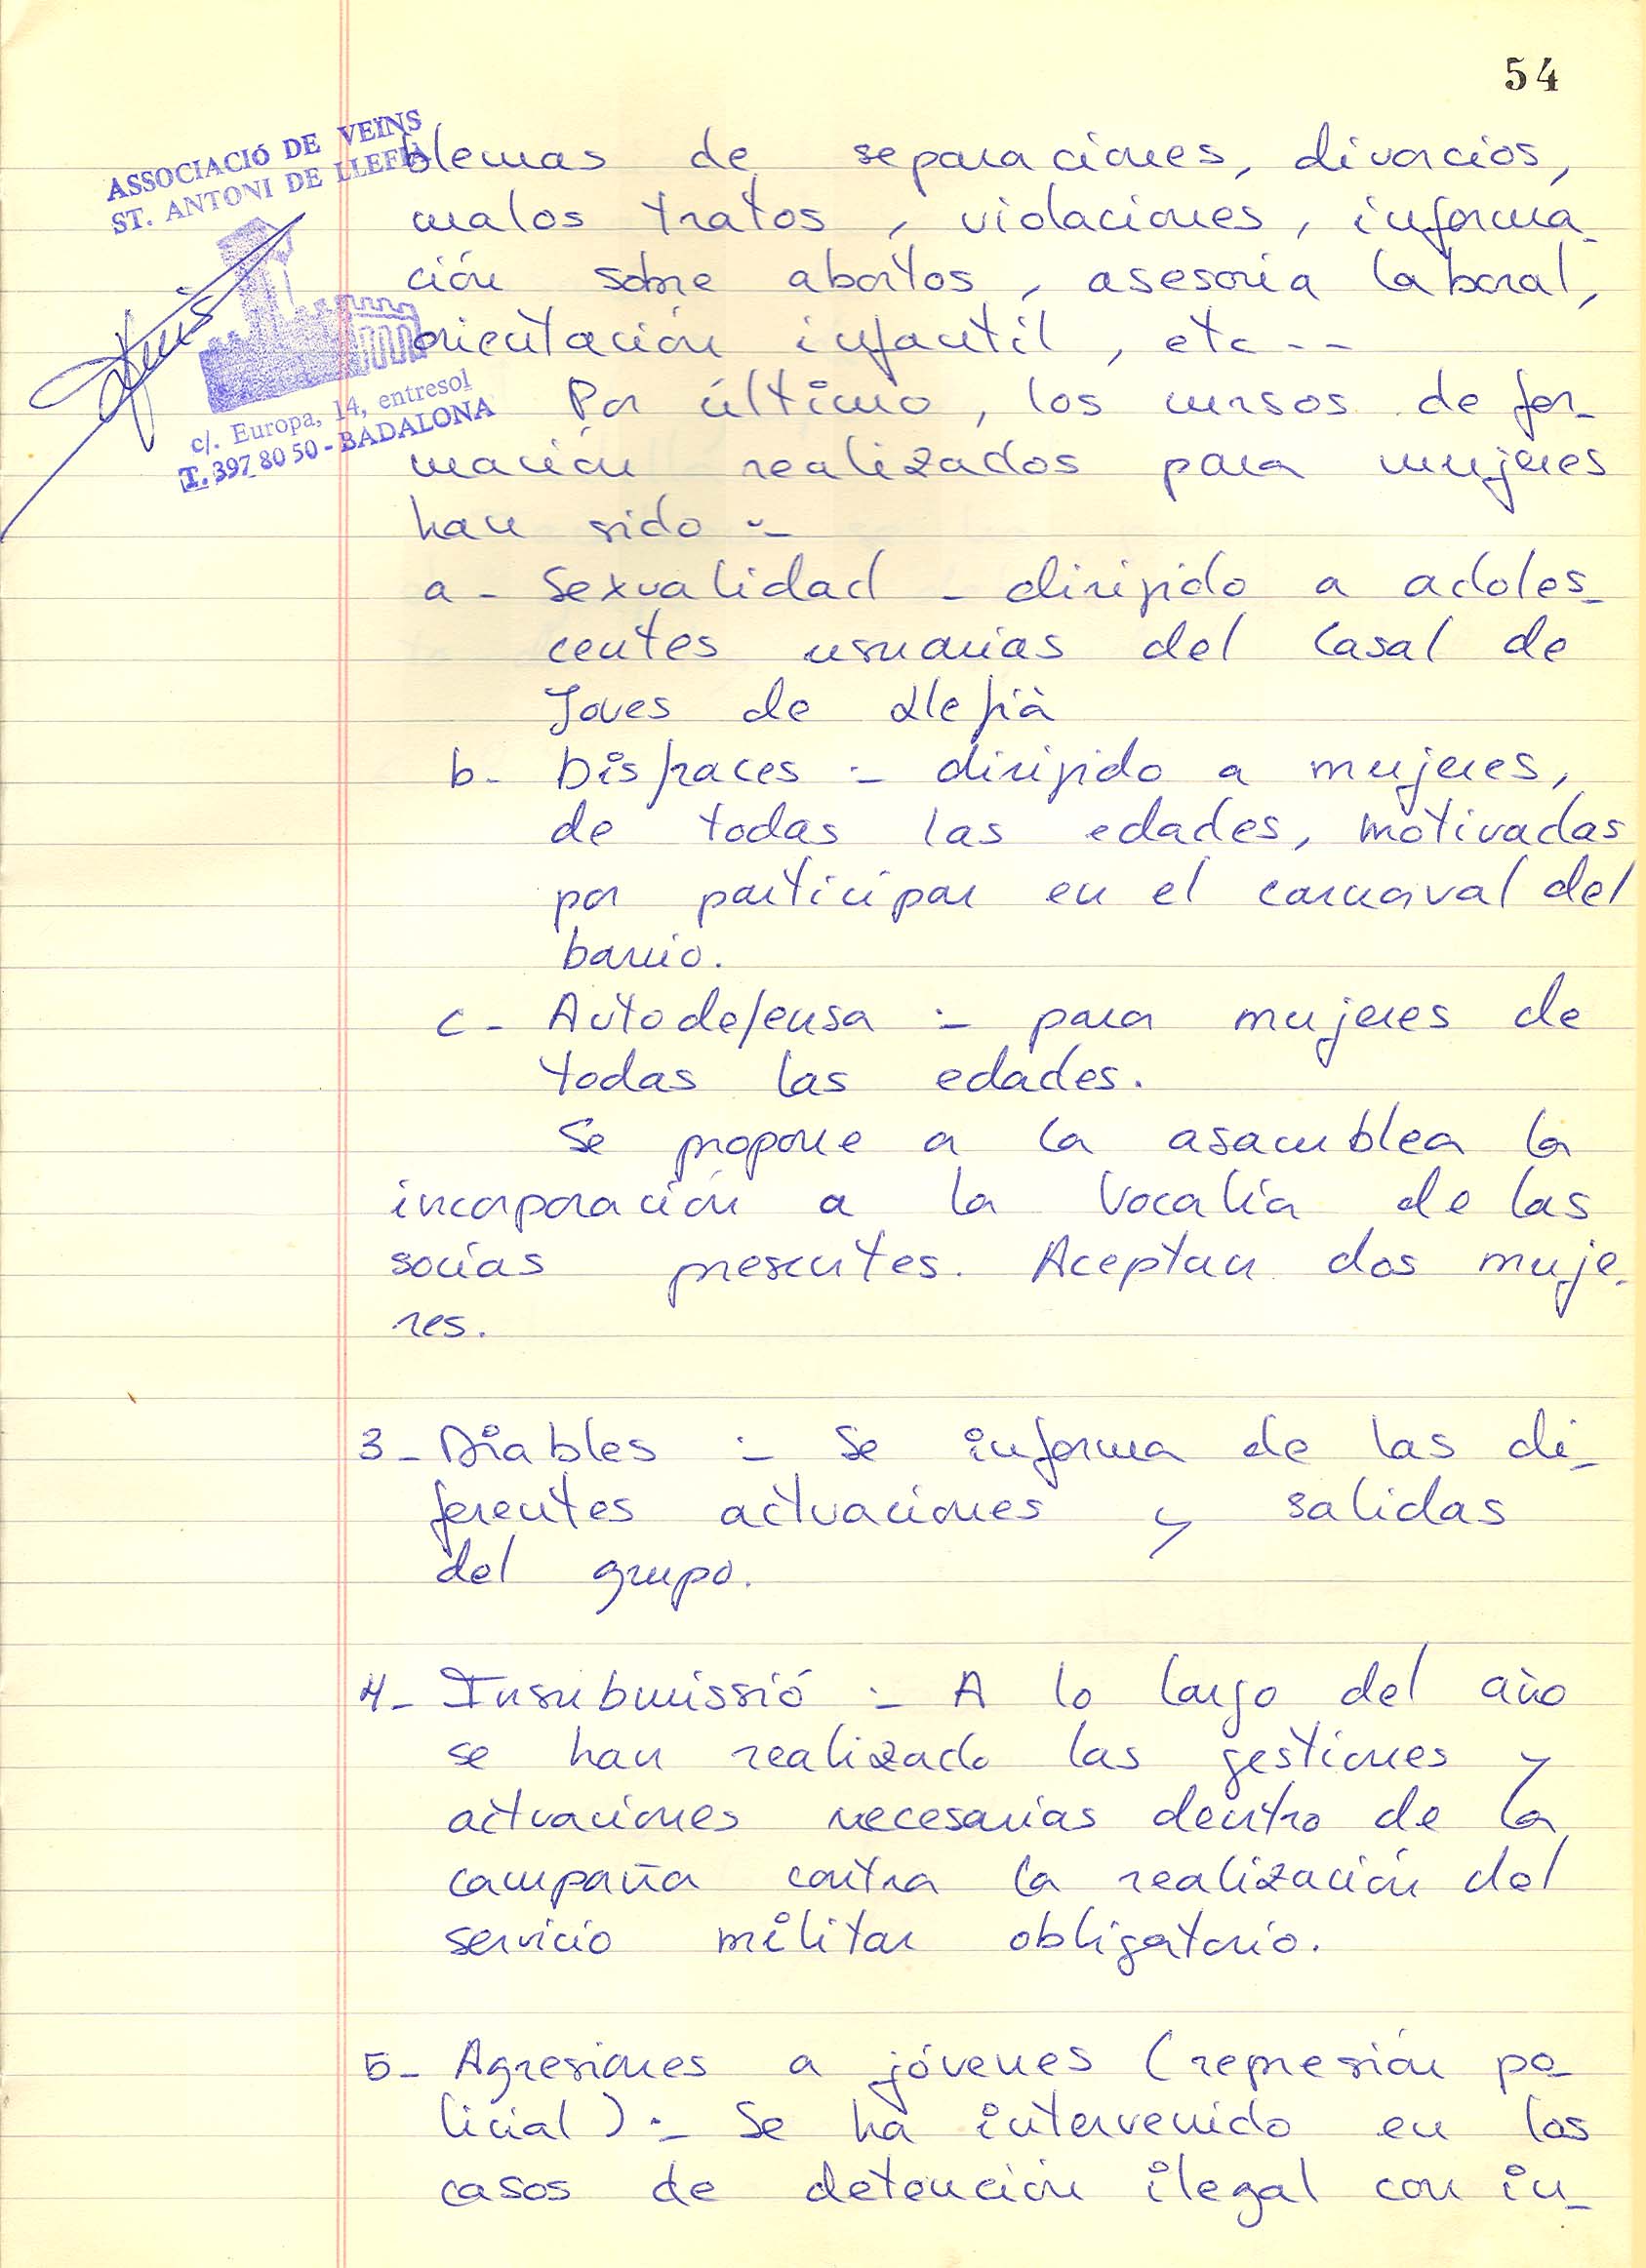 54
ASSOCIACIÓ DE VEÏNS
ST. ANTONI DE LLEFIÀ
c/. Europa, 14, entresol
T. 397 80 50 - BADALONA
blemas de separaciones, divorcios,
malos tratos, violaciones, informa-
ción sobre abortos, asesoria laboral,
orientación infantil, etc--
Por último, los cursos de for-
mación realizados para mujeres
han sido :-
a - Sexualidad - dirigido a adoles-
centes usuarias del Casal de
Joves de Llefià
b- Disfraces :- dirigido a mujeres,
de todas las edades, motivadas
por participar en el carnaval del
barrio.
c- Autodefensa :- para mujeres de
todas las edades.
Se propone a la asamblea la
incorporación a la Vocalía de las
socias presentes. Aceptan dos muje-
res.
3- Diables :- Se informa de las di-
ferentes actuaciones y salidas
del grupo.
4- Insubmissió :- A lo largo del año
se han realizado las gestiones y
actuaciones necesarias dentro de la
campaña contra la realización del
servicio militar obligatorio.
5- Agresiones a jóvenes (represión po-
licial) :- Se ha intervenido en los
casos de detención ilegal con in-